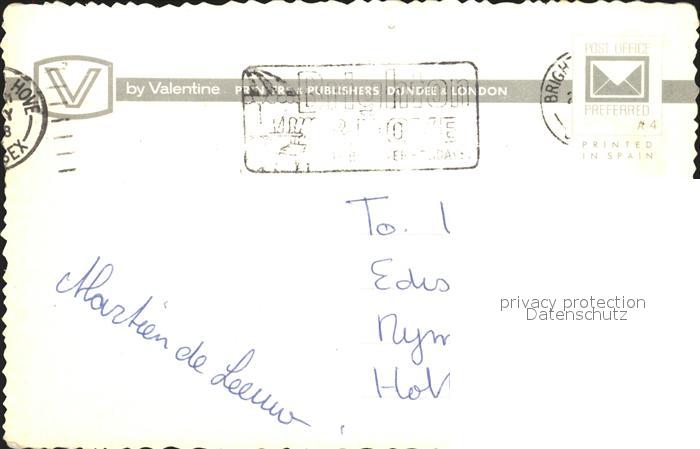 HOVE
SEX
V by Valentine PRINTERS & PUBLISHERS DUNDEE & LONDON
Brighton
HOVE
BRIGH
POST OFFICE
PREFERRED
A 4
PRINTED
IN SPAIN
To.
Edis
Nym
Hol
Martien de Leeuw
privacy protection
Datenschutz